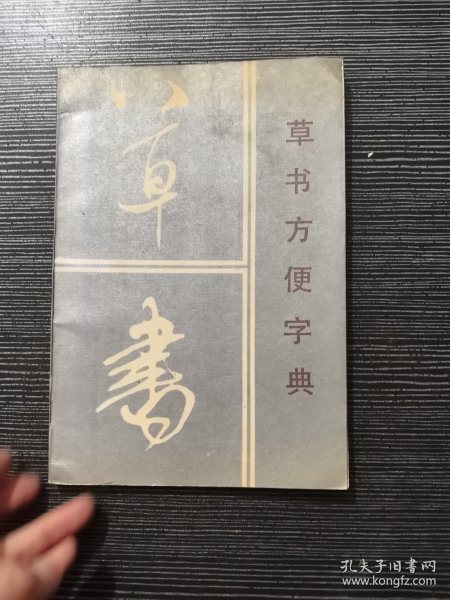 草书方便字典
草
書
孔夫子旧书网
www.kongfz.com